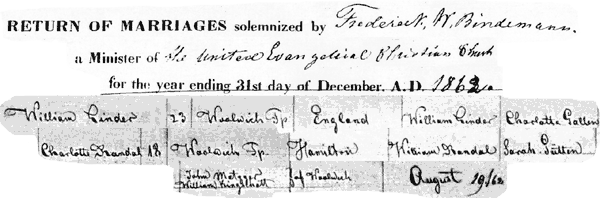 RETURN OF MARRIAGES solemnized by Frederick W. Bindemann.
a Minister of the United Evangelical Christian Church
for the year ending 31st day of December, A.D. 1862.
William Linder 23 Woolwich Tp England William Linder Charlotte
Charlotte Randal 18 Woolwich Tp. Hamilton William Randal Sarah
John Metzger of Woolwich August 19/62
William